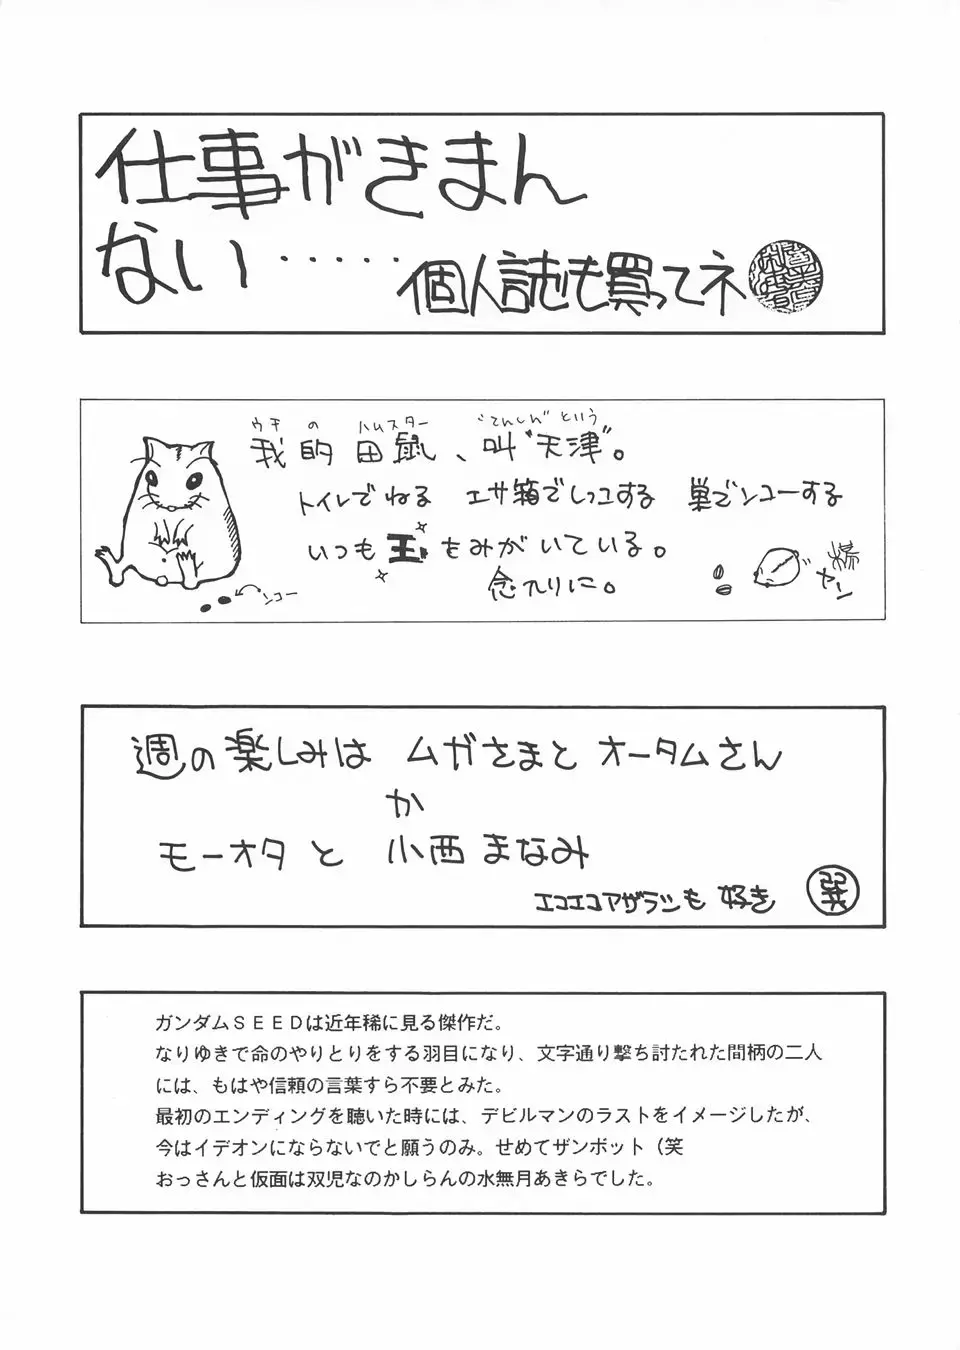 仕事がきまん
ない・・・・・個人誌も買ってネ
ウチ の ハムスター “てんしん” という
我的田鼠、叫“天津”。
トイレでねる エサ箱でしっコする 巣でンコーする
いつも玉をみがいている。
念入りに。
ンコー
ヤーン
週の楽しみは ムガさまと オータムさん
か
モーオタ と 小西 まなみ
エコエコアザラシも 好き
巽
ガンダムSEEDは近年稀に見る傑作だ。
なりゆきで命のやりとりをする羽目になり、文字通り撃ち討たれた間柄の二人
には、もはや信頼の言葉すら不要とみた。
最初のエンディングを聴いた時には、デビルマンのラストをイメージしたが、
今はイデオンにならないでと願うのみ。せめてザンボット（笑
おっさんと仮面は双児なのかしらんの水無月あきらでした。